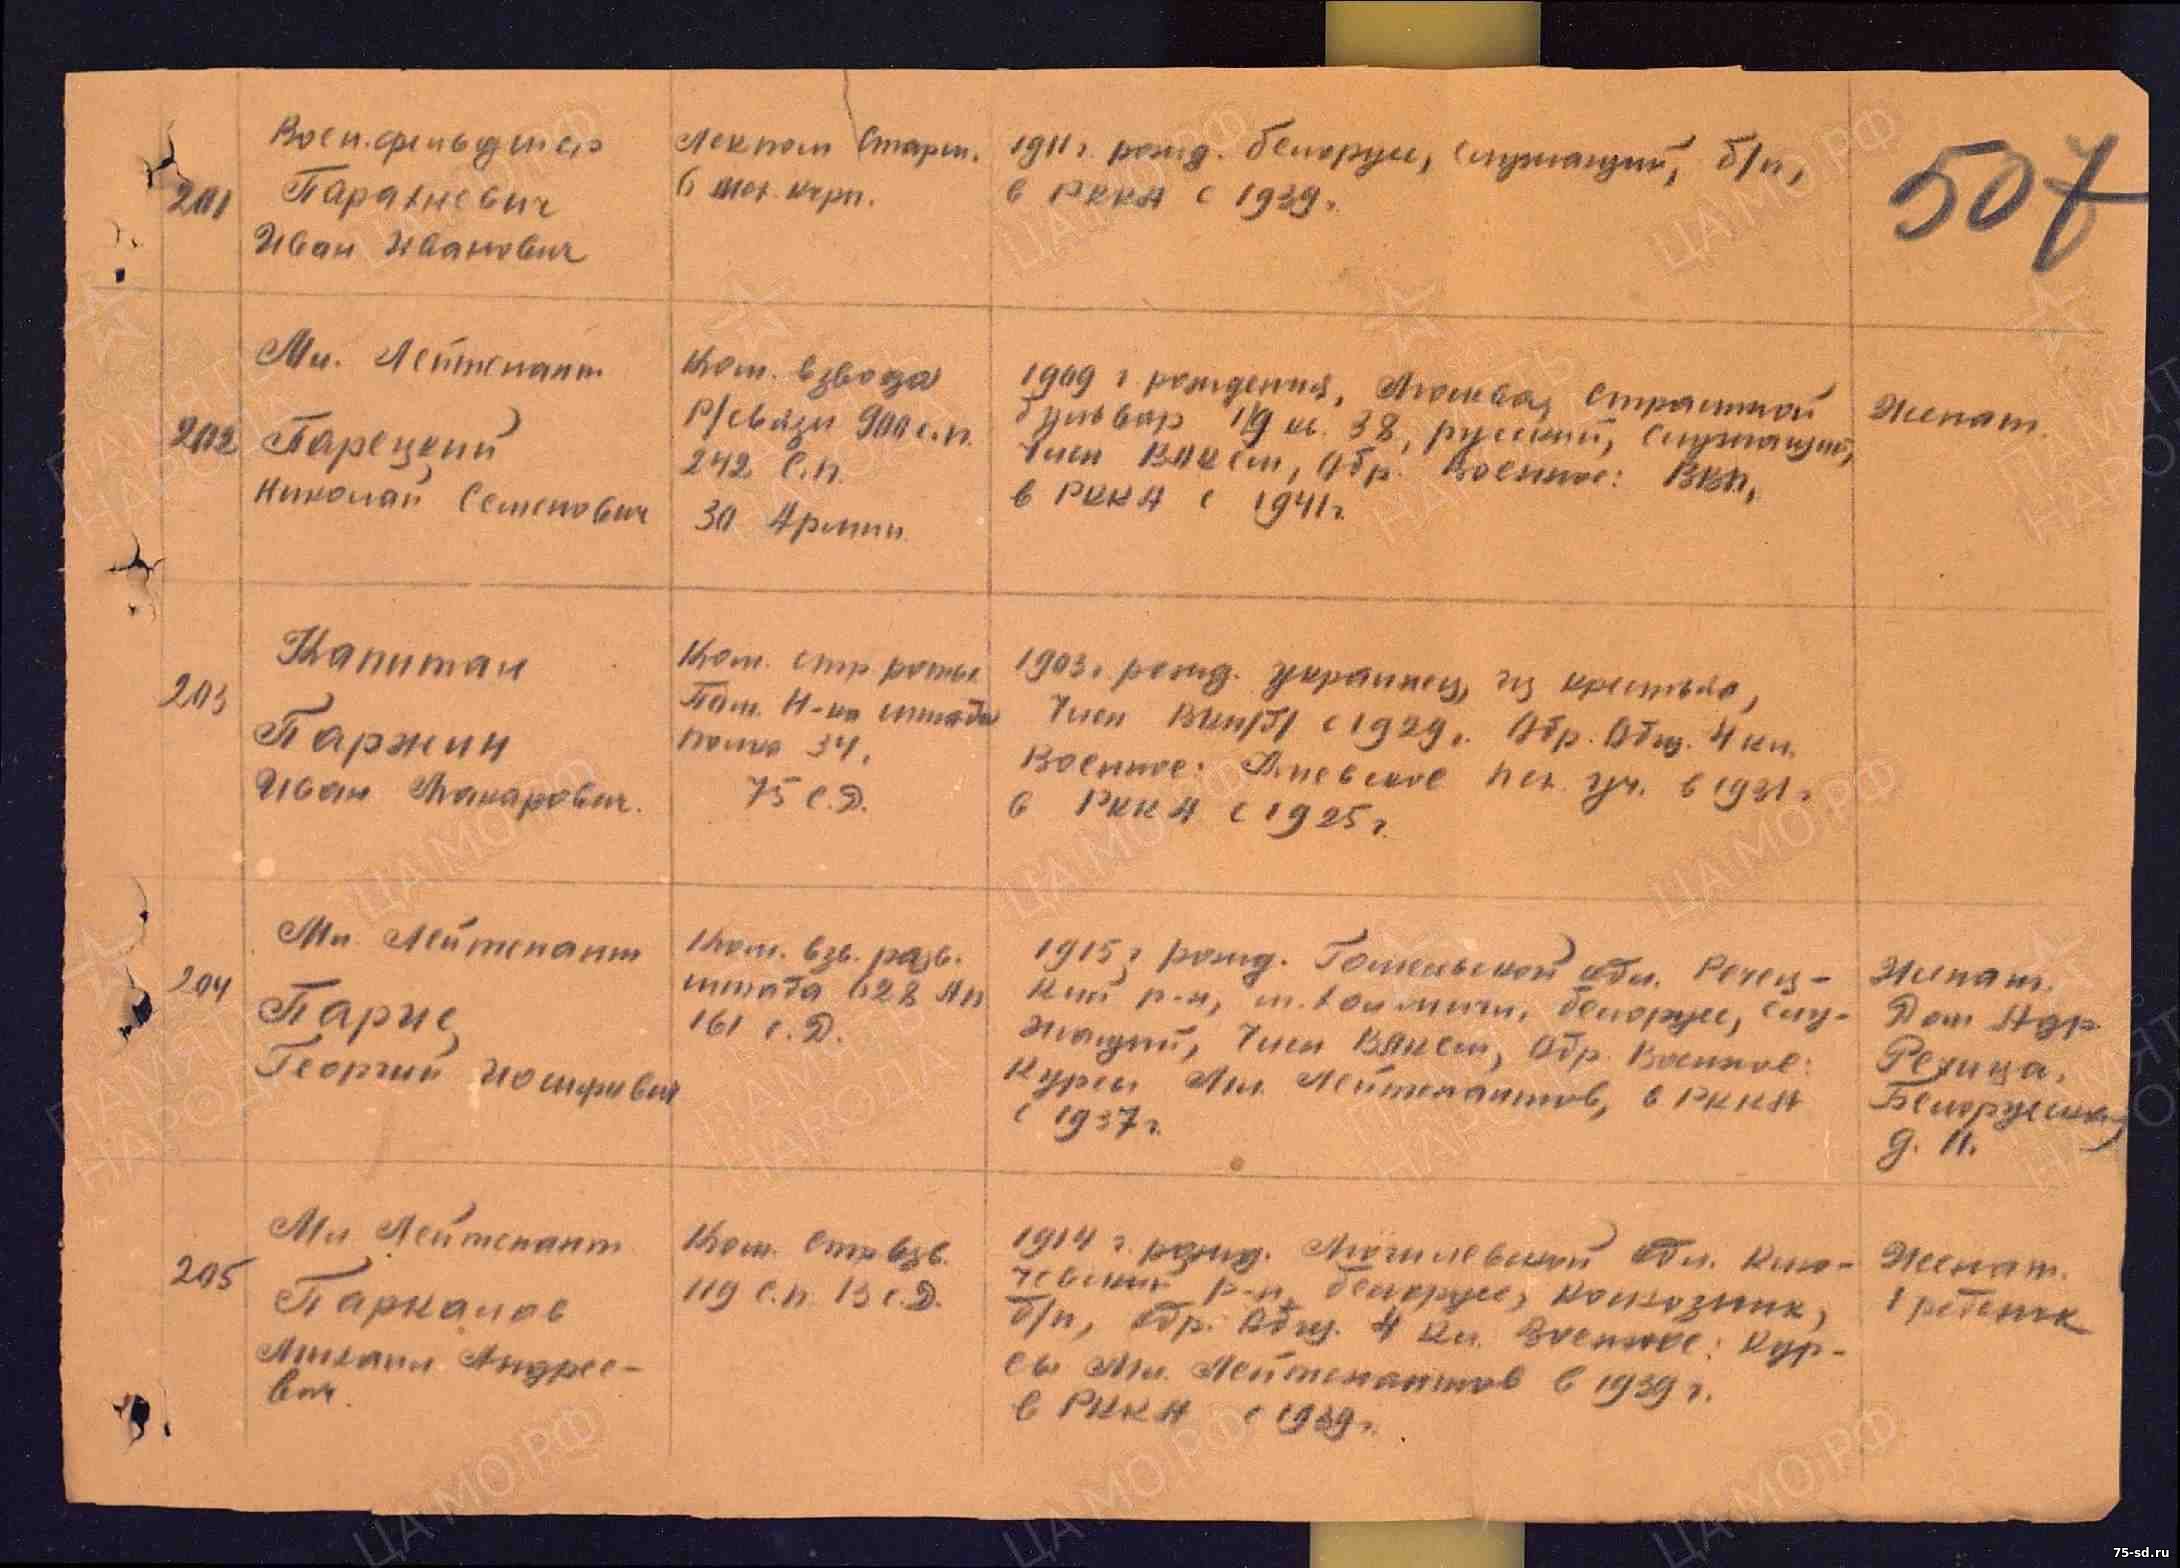 507
201
Воен.фельдшер
Парахневич
Иван Иванович
Лекпом Старш.
6 мех. корп.
1911 г. рожд. белорус, служащий, б/п,
в РККА с 1939 г.
202
Мл. Лейтенант
Парецкий
Николай Семенович
Ком. взвода
Р/связи 900 с.п.
242 с.п.
30 Армии
1909 г. рождения, Москва, Страстной
бульвар 1/9 кв. 38, русский, служащий,
Член ВЛКСМ, Обр. Военное:
в РККА с 1941 г.
Женат.
203
Капитан
Паржин
Иван Макарович.
Ком. стр роты
Пом. Н-ка штаба
полка 34,
75 с.Д.
1903 г. рожд. Украинец, из крестьян,
Член ВКП/б/ с 1929 г. Обр. Общ. 4 кл.
Военное: Киевское пех. уч. в 1931 г
в РККА с 1925 г.
204
Мл. Лейтенант
Парис
Георгий Иосифович
Ком. взв. разв.
штаба 628 Ап
161 с.Д.
1915 г рожд. Гомельской обл. Речец-
кий р-н, белорус, слу-
жащий, Член ВЛКСМ, Обр. Военное:
Курсы Мл. Лейтенантов, в РККА
с 1937 г.
Женат.
Дом Адр
Речица,
Белорусская,
д. 11.
205
Мл Лейтенант
Паркалов
Михаил Андрее-
вич.
Ком. Стр взв.
119 с.п. 13 с.Д.
1914 г. рожд. Могилевской обл. Кли-
чевский р-н, белорус, колхозник,
б/п, обр. Общ. 4 кл. Военное: Кур-
сы Мл. Лейтенантов в 1939 г.
в РККА с 1939 г.
Женат.
1 ребенок
ЦАМО.РФ
ПАМЯТЬ
НАРОДА
75-sd.ru